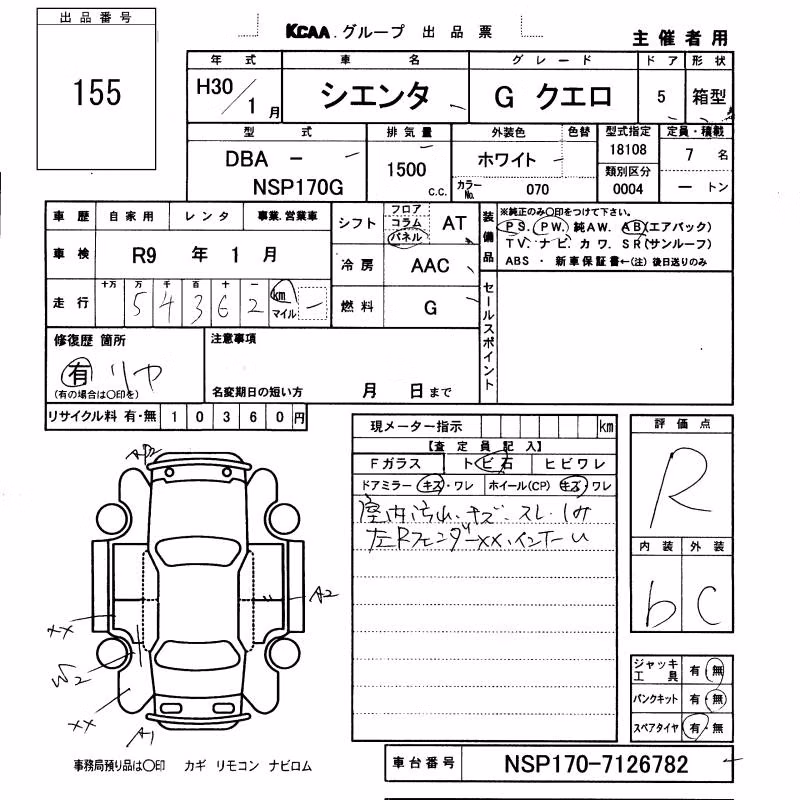 出品番号
155
KCAA.グループ 出品票
主催者用
年式 車名 グレード ドア 形状
H30/1月 シエンタ G クエロ 5 箱型
型式 排気量 外装色 色替 型式指定 定員・積載
DBA - NSP170G 1500 c.c. ホワイト 18108 7名
カラーNo. 070 類別区分 0004 ートン
車歴 自家用 レンタ 事業.営業車
車検 R9年1月
走行 十万 万 千 百 十 一
5 4 3 6 2 km マイル
シフト フロア コラム パネル AT
冷房 AAC
燃料 G
装備品
※純正のみ〇印をつけて下さい。
PS. PW. 純AW. AB(エアバック)
TV. ナビ. カワ. SR(サンルーフ)
ABS・新車保証書←(注)後日送りのみ
セールスポイント
修復歴 箇所
有 リヤ
(有の場合は〇印を)
注意事項
名変期日の短い方 月 日まで
リサイクル料 有・無 10360円
現メーター指示 km
【査定員記入】
Fガラス トビ石 ヒビワレ
ドアミラー キズ・ワレ ホイール(CP) キズ・ワレ
室内汚れ、キズ、スレ、しみ
左Rフェンダーxx、インナーU
評価点
R
内装 外装
b C
A2
A2
xx
W2
xx
A1
ジャッキ工具 有・無
パンクキット 有・無
スペアタイヤ 有・無
事務局預り品は〇印 カギ リモコン ナビロム
車台番号 NSP170-7126782